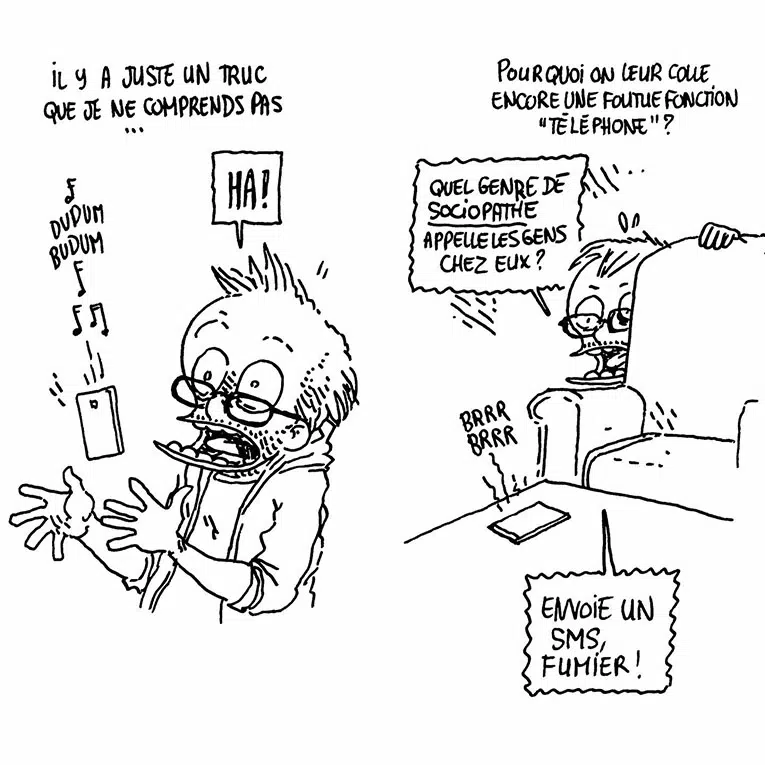 IL Y A JUSTE UN TRUC
QUE JE NE COMPRENDS PAS
...
HA!
DUDUM
BUDUM
POURQUOI ON LEUR COLLE
ENCORE UNE FOUTUE FONCTION
"TÉLÉPHONE" ?
QUEL GENRE DE
SOCIOPATHE
APPELLE LES GENS
CHEZ EUX ?
BRRR
BRRR
ENVOIE UN
SMS,
FUMIER !